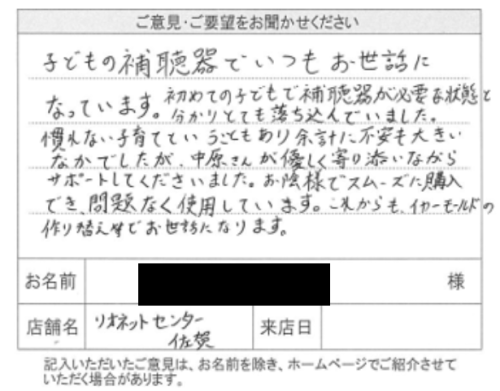 ご意見・ご要望をお聞かせください
子どもの補聴器でいつもお世話に
なっています。初めての子どもで補聴器が必要な状態と
分かりとても落ち込んでいました。
慣れない子育てということもあり余計に不安も大きい
なかでしたが、中原さんが優しく寄り添いながら
サポートしてくださいました。お陰様でスムーズに購入
でき、問題なく使用しています。これからも、イヤーモールドの
作り替え等でお世話になります。
お名前 様
店舗名 リオネットセンター 来店日
佐賀
記入いただいたご意見は、お名前を除き、ホームページでご紹介させて
いただく場合があります。